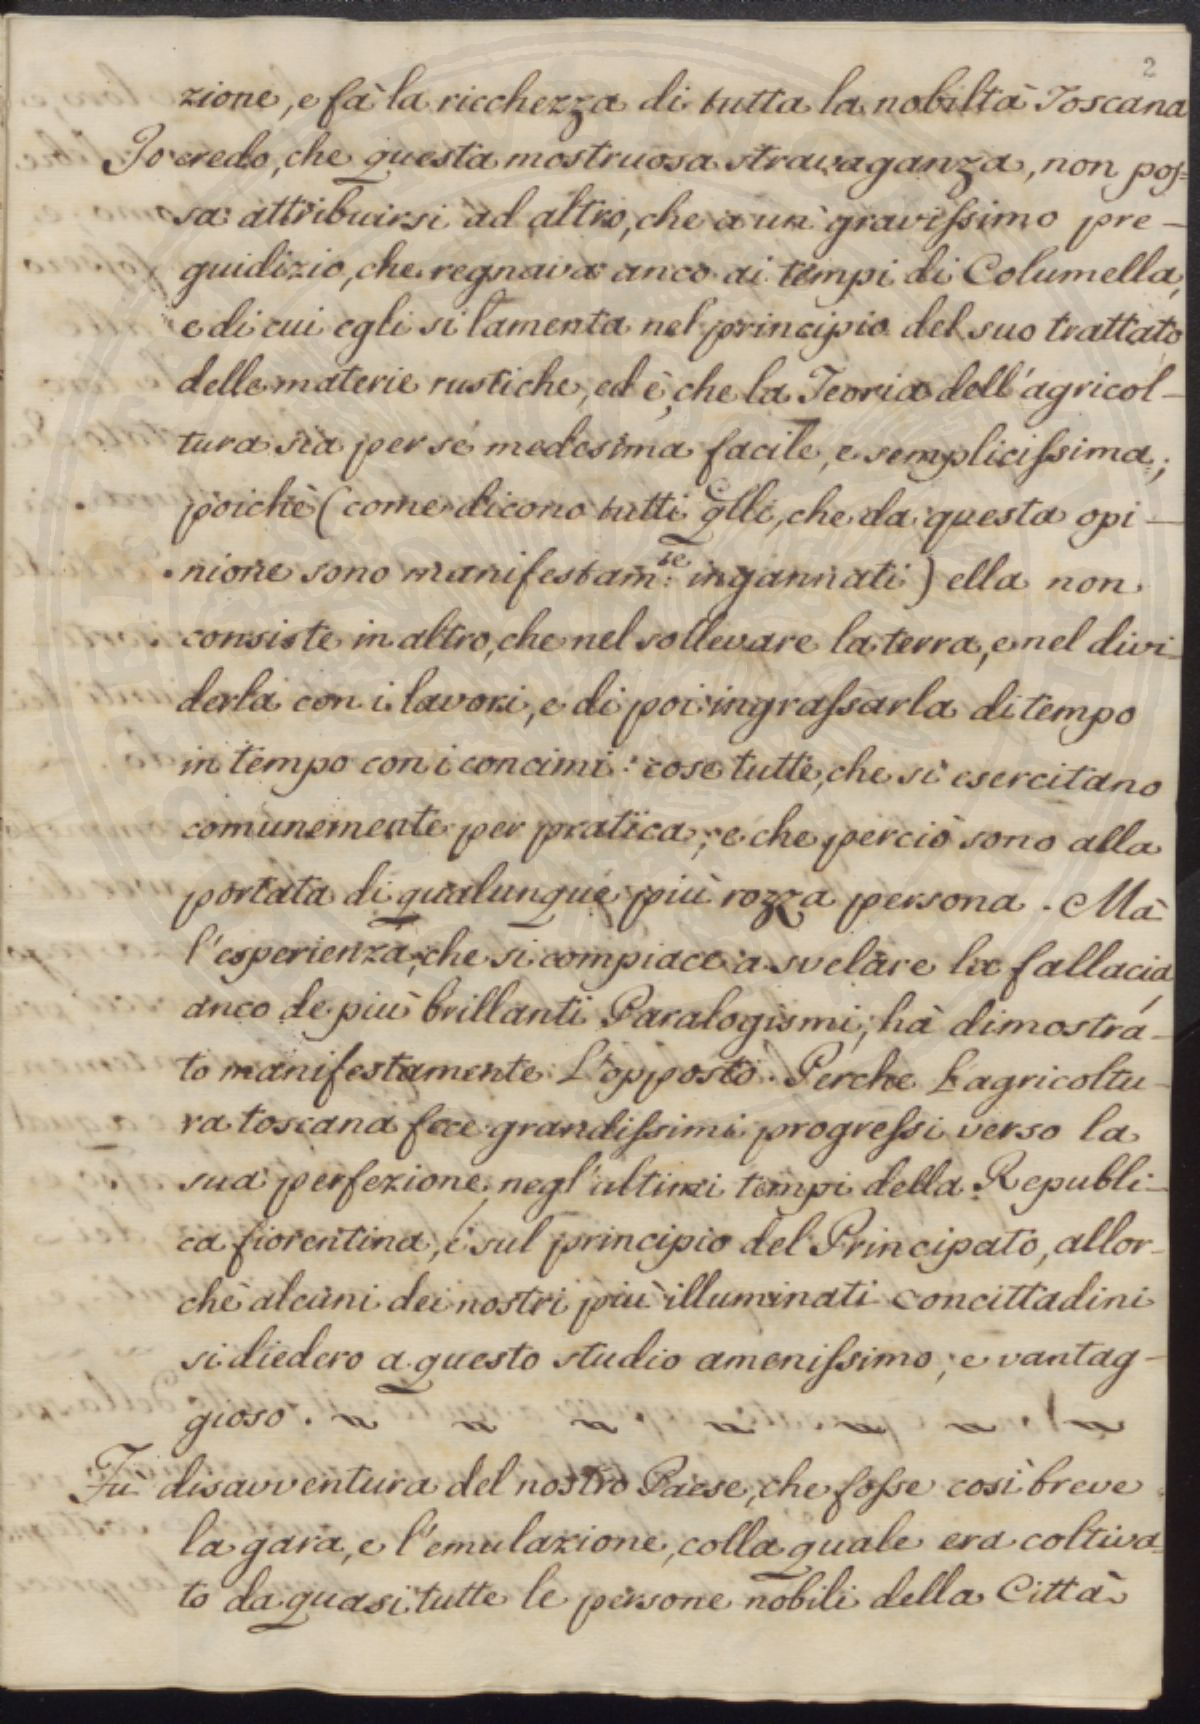 2
zione, e fà la ricchezza di tutta la nobiltà Toscana
Jo credo, che questa mostruosa stravaganza, non pos=
sa attribuirsi ad altro, che a un gravissimo pre-
guidizio, che regnava anco ai tempi di Columella,
e di cui egli si lamenta nel principio del suo trattato
delle materie rustiche, ed è, che la Teoria dell'agricol-
tura sia per sé medesima facile, e semplicissima;
poichè (come dicono tutti qlli, che da questa opi-
nione sono manifestam:te ingannati) ella non
consiste in altro, che nel sollevare la terra, e nel divi-
derla con i lavori, e di poi ingrassarla di tempo
in tempo con i concimi: cose tutte, che si esercitano
comunemente per pratica; e che perciò sono alla
portata di qualunque più rozza persona. Mà
l'esperienza, che si compiace a svelare la fallacia
anco de più brillanti Paralogismi, hà dimostra-
to manifestamente L'opposto. Perche L'agricoltu-
ra toscana fece grandissimi progressi verso la
sua perfezione, negl'ultimi tempi della Republi-
ca fiorentina, e sul principio del Principato, allor-
chè alcuni dei nostri più illuminati concittadini
si diedero a questo studio amenissimo, e vantag-
gioso.
Fù disavventura del nostro Paese, che fosse così breve
la gara, e l'emulazione, colla quale era coltiva=
to da quasi tutte le persone nobili della Città